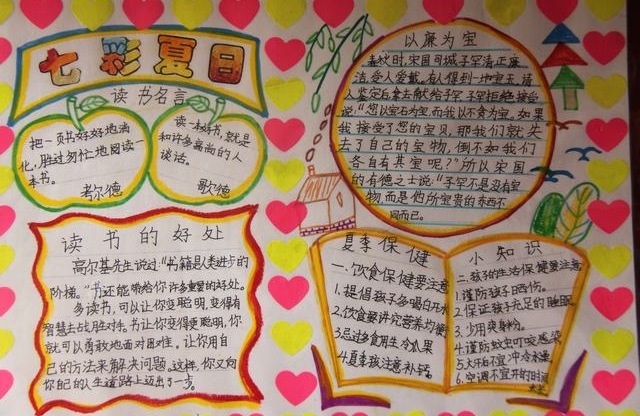 七彩夏日
读书名言
把一页书好好地消
化,胜过匆忙地阅读一
本书。
读一本好书,就是
和许多高尚的人
谈话。
歌德
读书的好处
高尔基先生说过:"书籍是人类进步的
阶梯。"书还能带给你许多重要的好处。
多读书,可以让你变聪明,变得有
智慧去战胜对手。书让你变得更聪明,你
就可以勇敢地面对困难。让你用自
己的方法来解决问题。这样,你又向
你自己的人生道路上迈出了一步。
以廉为宝
春秋时,宋国司城子罕清正廉
洁,受人爱戴。有人得到一块宝玉,请
人鉴定后拿去献给子罕,子罕拒绝接受,
说:"您以宝石为宝,而我以不贪为宝。如果
我接受了您的宝贝,那我们就失
去了自己的宝物,倒不如我们
各自有其宝呢?"所以宋国
的有德之士说:"子罕不是没有宝
物,而是他所宝贵的东西不
同而已。
夏季保健
一、饮食保健要注意
1.提倡孩子多喝白开水
2.饮食要讲究营养均衡
3.忌过多食用生冷瓜果
4.夏季孩注意补钙
小知识
二、孩子的生活保健要注意
1.谨防孩子日晒伤。
2.保证孩子充足的睡眠
3.少用爽身粉。
4.谨防蚊虫叮咬感染
5.大汗后不宜冲冷水澡
6.空调不宜开的时间